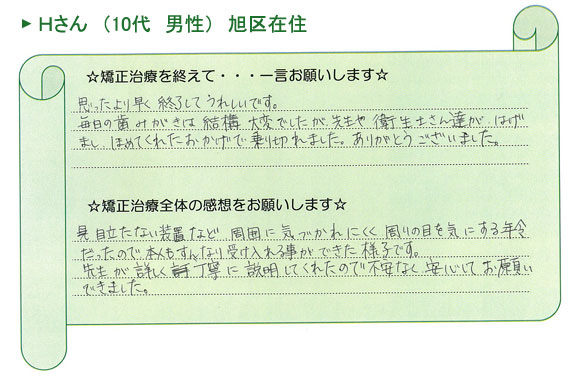 ▶ Hさん （10代　男性） 旭区在住
☆矯正治療を終えて・・・一言お願いします☆
思ったより早く終了してうれしいです。
毎日の歯みがきは結構大変でしたが、先生や衛生士さん達が、はげ
まし、ほめてくれたおかげで乗り切れました。ありがとうございました。
☆矯正治療全体の感想をお願いします☆
見目立たない装置など周囲に気づかれにくく周りの目を気にする年令
だったので本人もすんなり受け入れる事ができた様子です。
先生が詳しく丁寧に説明してくれたので不安なく安心してお願い
できました。